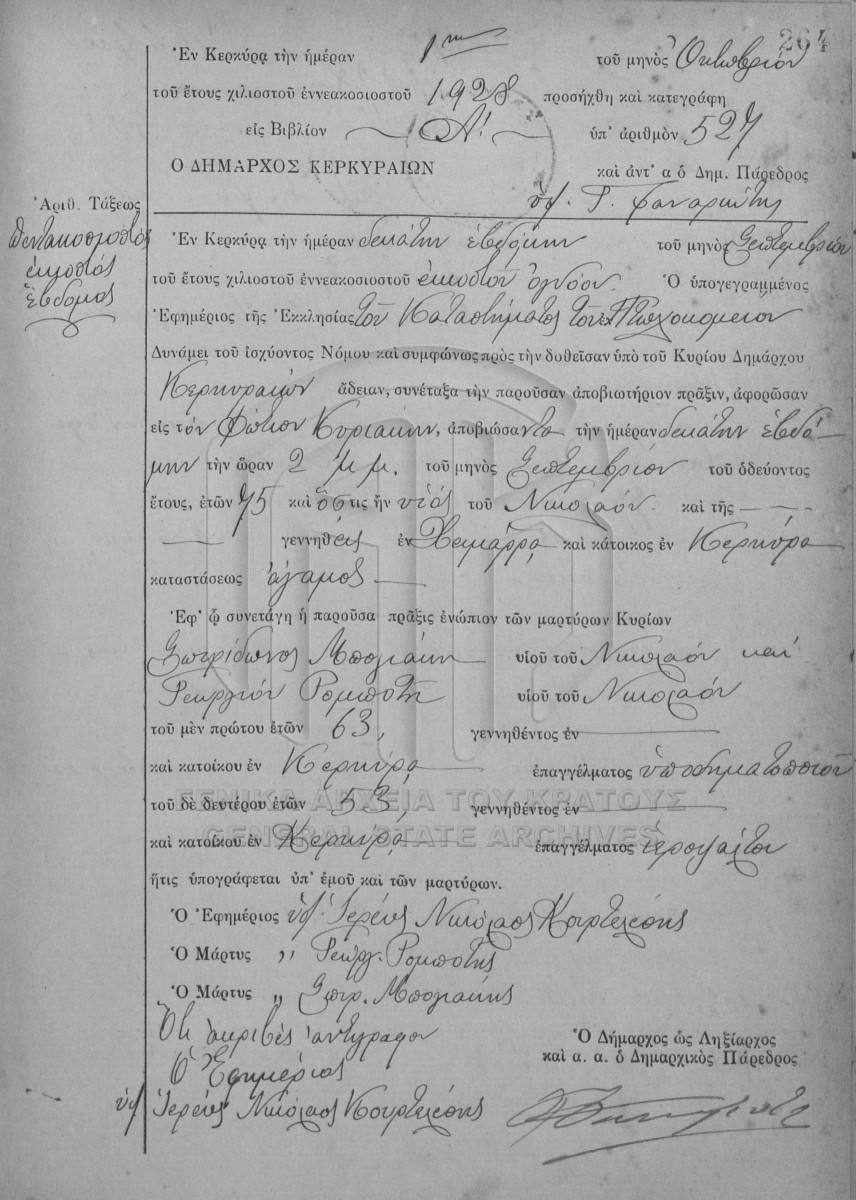 264
Ἐν Κερκύρᾳ τὴν ἡμέραν 1ην τοῦ μηνὸς Ὀκτωβρίου
τοῦ ἔτους χιλιοστοῦ ἐννεακοσιοστοῦ 1928 προσήχθη καὶ κατεγράφη
εἰς Βιβλίον Α! ὑπ' ἀριθμὸν 527
Ο ΔΗΜΑΡΧΟΣ ΚΕΡΚΥΡΑΙΩΝ καὶ ἀντ' α ὁ Δημ. Πάρεδρος
ὑπ. Γ.
Ἀριθ. Τάξεως
Πεντακοσιοστὸς
εἰκοστὸς
ἕβδομος
Ἐν Κερκύρᾳ τὴν ἡμέραν δεκάτην ἑβδόμην τοῦ μηνὸς Σεπτεμβρίου
τοῦ ἔτους χιλιοστοῦ ἐννεακοσιοστοῦ εἰκοστοῦ ὀγδόου. Ὁ ὑπογεγραμμένος
Ἐφημέριος τῆς Ἐκκλησίας τοῦ Καταστήματος τοῦ Πτωχοκομείου
Δυνάμει τοῦ ἰσχύοντος Νόμου καὶ συμφώνως πρὸς τὴν δοθεῖσαν ὑπὸ τοῦ Κυρίου Δημάρχου
Κερκυραίων ἄδειαν, συνέταξα τὴν παροῦσαν ἀποβιωτήριον πρᾶξιν, ἀφορῶσαν
εἰς τὸν Φώτιον Κυριάκην, ἀποβιώσαντα τὴν ἡμέραν δεκάτην ἑβδό-
μην τὴν ὥραν 2 μ μ. τοῦ μηνὸς Σεπτεμβρίου τοῦ ὁδεύοντος
ἔτους, ἐτῶν 75 καὶ ὅστις ἦν υἱὸς τοῦ Νικολάου. καὶ τῆς —
— γεννηθεὶς ἐν Χειμάρρᾳ καὶ κάτοικος ἐν Κερκύρᾳ
καταστάσεως ἄγαμος —
Ἐφ' ᾧ συνετάγη ἡ παροῦσα πρᾶξις ἐνώπιον τῶν μαρτύρων Κυρίων
Σπυρίδωνος Μπογιάκη υἱοῦ τοῦ Νικολάου καὶ
Γεωργίου Ρομποτῆ υἱοῦ τοῦ Νικολάου
τοῦ μὲν πρώτου ἐτῶν 63, γεννηθέντος ἐν —
καὶ κατοίκου ἐν Κερκύρᾳ ἐπαγγέλματος ὑποδηματοποιοῦ
τοῦ δὲ δευτέρου ἐτῶν 53, γεννηθέντος ἐν —
καὶ κατοίκου ἐν Κερκύρᾳ ἐπαγγέλματος ἱεροψάλτου
ἥτις ὑπογράφεται ὑπ' ἐμοῦ καὶ τῶν μαρτύρων.
Ὁ Ἐφημέριος ὑπ. Ἱερεὺς Νικόλαος Κουρτελέσης
Ὁ Μάρτυς " Γεώργ. Ρομποτῆς
Ὁ Μάρτυς " Σπυρ. Μπογιάκης
Ὅτι ἀκριβὲς ἀντίγραφον
Ὁ Ἐφημέριος
ὑπ. Ἱερεὺς Νικόλαος Κουρτελέσης
Ὁ Δήμαρχος ὡς Ληξίαρχος
καὶ α. α. ὁ Δημαρχικὸς Πάρεδρος
ΓΕΝΙΚΑ ΑΡΧΕΙΑ ΤΟΥ ΚΡΑΤΟΥΣ
GENERAL STATE ARCHIVES